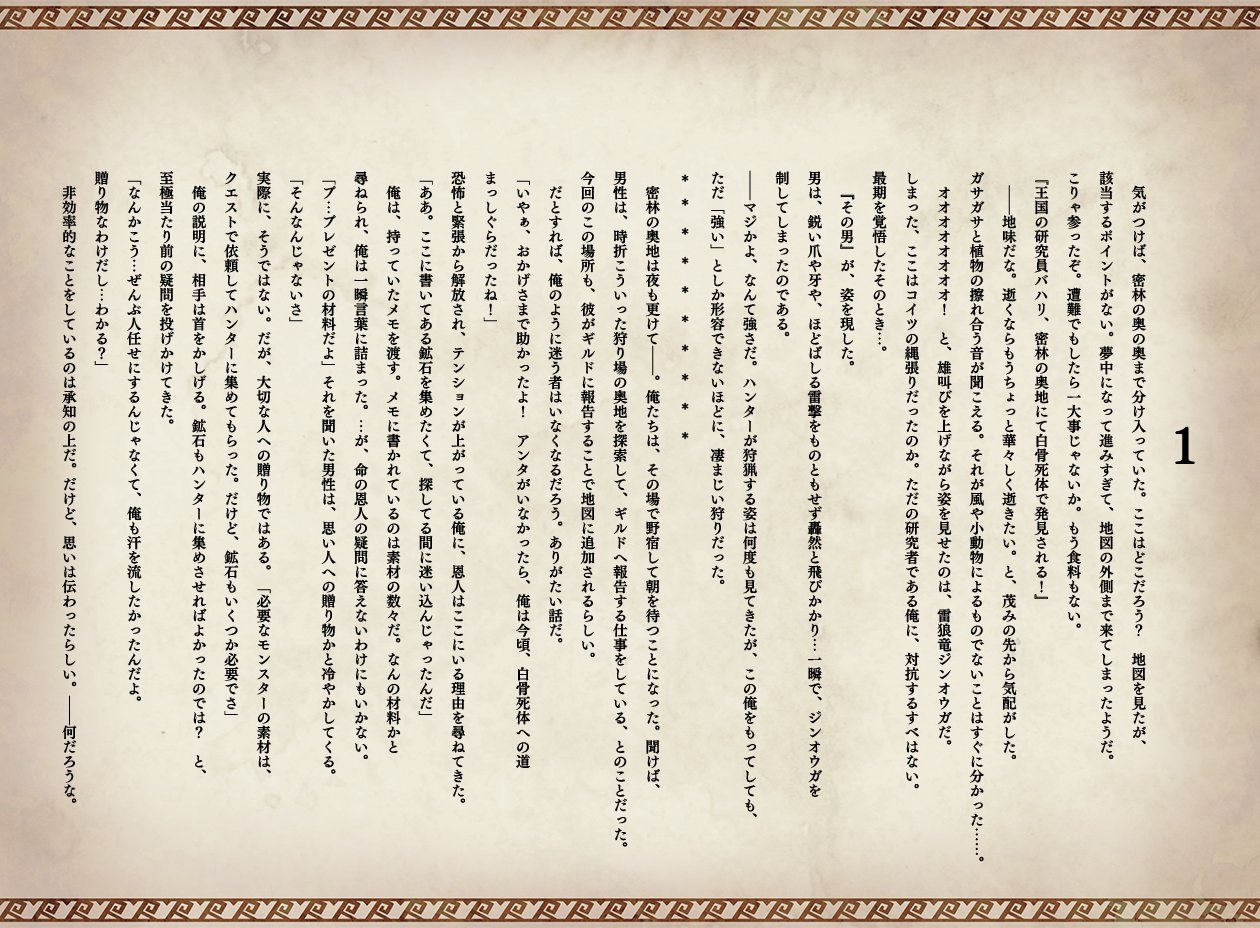 1
気がつけば、密林の奥の奥まで分け入っていた。ここはどこだろう？　地図を見たが、
該当するポイントがない。夢中になって進みすぎて、地図の外側まで来てしまったようだ。
こりゃ参ったぞ。遭難でもしたら一大事じゃないか。もう食料もない。
『王国の研究員バハリ、密林の奥地にて白骨死体で発見される！』
――地味だな。逝くならもうちょっと華々しく逝きたい。と、茂みの先から気配がした。
ガサガサと植物の擦れ合う音が聞こえる。それが風や小動物によるものでないことはすぐに分かった……。
オオオオオオオオ！　と、雄叫びを上げながら姿を見せたのは、雷狼竜ジンオウガだ。
しまった、ここはコイツの縄張りだったのか。ただの研究者である俺に、対抗するすべはない。
最期を覚悟したそのとき…。
『その男』が、姿を現した。
男は、鋭い爪や牙や、ほどばしる雷撃をものともせず轟然と飛びかかり…一瞬で、ジンオウガを
制してしまったのである。
――マジかよ、なんて強さだ。ハンターが狩猟する姿は何度も見てきたが、この俺をもってしても、
ただ「強い」としか形容できないほどに、凄まじい狩りだった。
＊　＊　＊　＊　＊　＊　＊　＊　＊　＊
密林の奥地は夜も更けて――。俺たちは、その場で野宿して朝を待つことになった。聞けば、
男性は、時折こういった狩り場の奥地を探索して、ギルドへ報告する仕事をしている、とのことだった。
今回のこの場所も、彼がギルドに報告することで地図に追加されるらしい。
だとすれば、俺のように迷う者はいなくなるだろう。ありがたい話だ。
「いやぁ、おかげさまで助かったよ！　アンタがいなかったら、俺は今頃、白骨死体への道
まっしぐらだったね！」
恐怖と緊張から解放され、テンションが上がっている俺に、恩人はここにいる理由を尋ねてきた。
「ああ。ここに書いてある鉱石を集めたくて、探してる間に迷い込んじゃったんだ」
俺は、持っていたメモを渡す。メモに書かれているのは素材の数々だ。なんの材料かと
尋ねられ、俺は一瞬言葉に詰まった。…が、命の恩人の疑問に答えないわけにもいかない。
「プ…プレゼントの材料だよ」それを聞いた男性は、思い人への贈り物かと冷やかしてくる。
「そんなんじゃないさ」
実際に、そうではない。だが、大切な人への贈り物ではある。「必要なモンスターの素材は、
クエストで依頼してハンターに集めてもらった。だけど、鉱石もいくつか必要でさ」
俺の説明に、相手は首をかしげる。鉱石もハンターに集めさせればよかったのでは？　と、
至極当たり前の疑問を投げかけてきた。
「なんかこう…ぜんぶ人任せにするんじゃなくて、俺も汗を流したかったんだよ。
贈り物なわけだし…わかる？」
非効率的なことをしているのは承知の上だ。だけど、思いは伝わったらしい。――何だろうな。